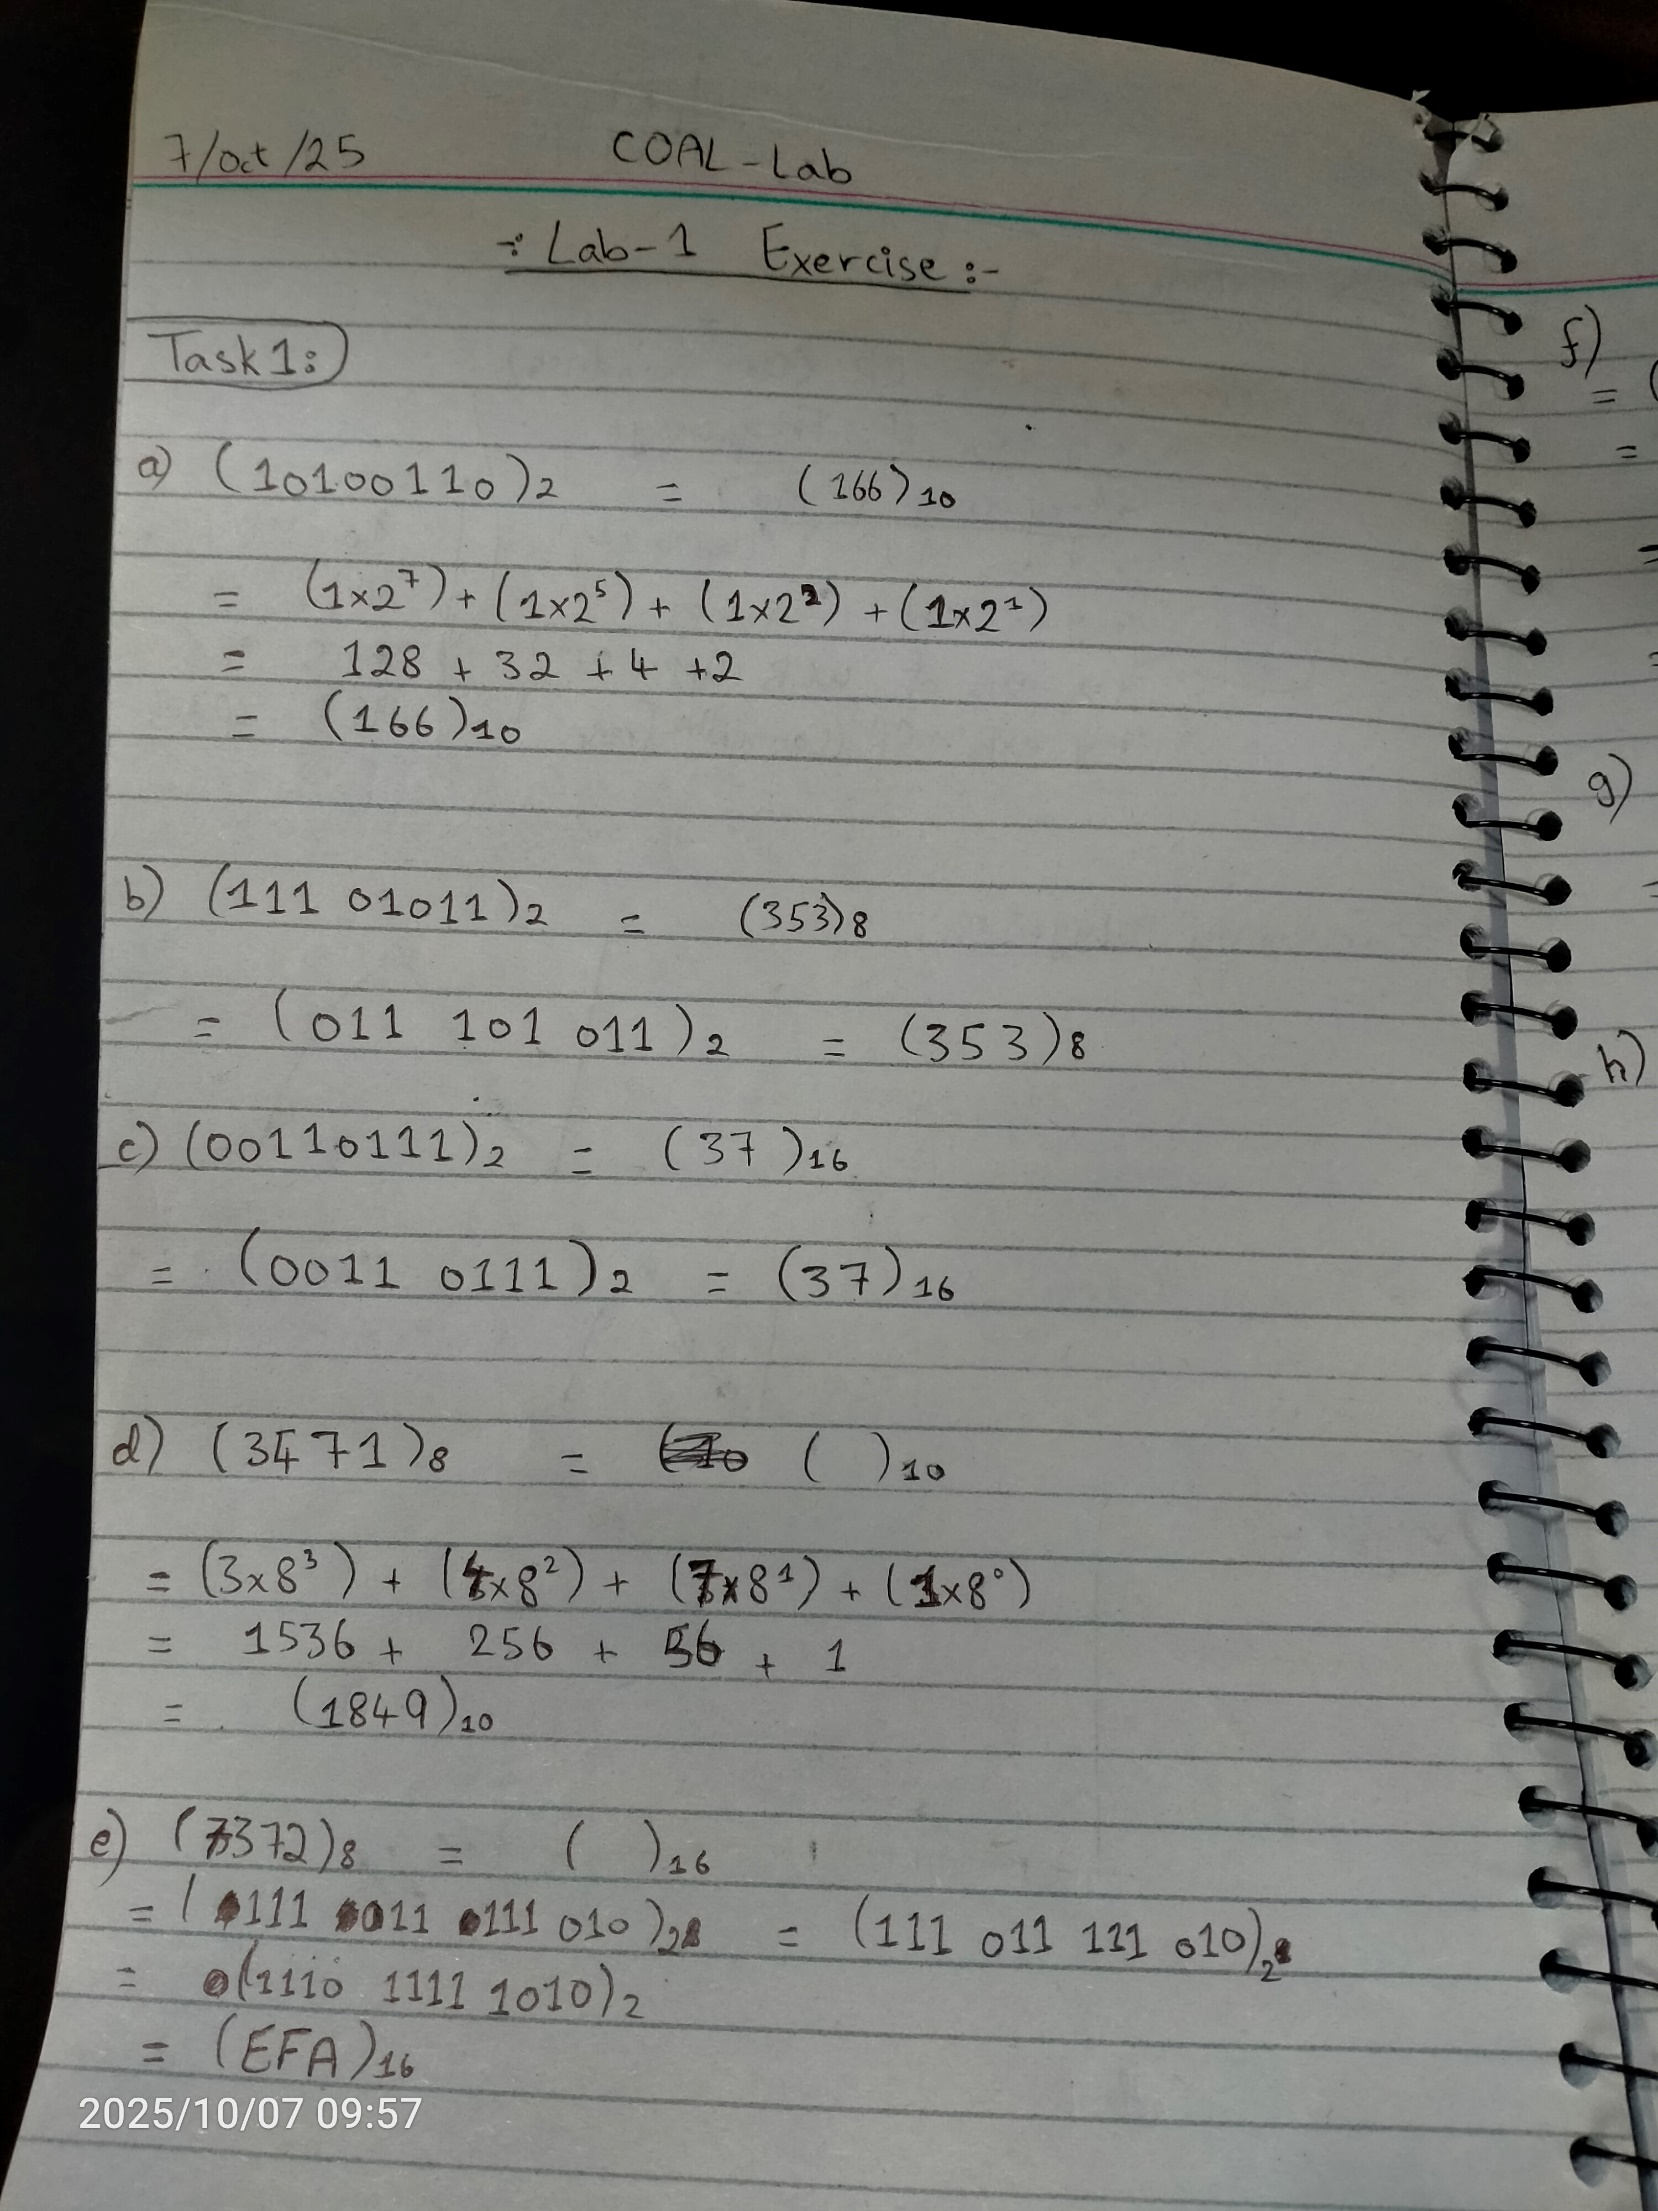 7/oct/25 COAL-Lab
-: Lab-1 Exercise :-
Task 1:
a) (10100110)₂ = (166)₁₀
= (1x2⁷) + (1x2⁵) + (1x2²) + (1x2¹)
= 128 + 32 + 4 +2
= (166)₁₀
b) (111 01011)₂ = (353)₈
= (011 101 011)₂ = (353)₈
c) (00110111)₂ = (37)₁₆
= (0011 0111)₂ = (37)₁₆
d) (3471)₈ = ( )₁₀
= (3x8³) + (4x8²) + (7x8¹) + (1x8⁰)
= 1536 + 256 + 56 + 1
= (1849)₁₀
e) (7372)₈ = ( )₁₆
= (111 011 111 010)₂ = (111 011 111 010)₂
= (1110 1111 1010)₂
= (EFA)₁₆
f)
= (
=
=
=
g)
=
h)
2025/10/07 09:57